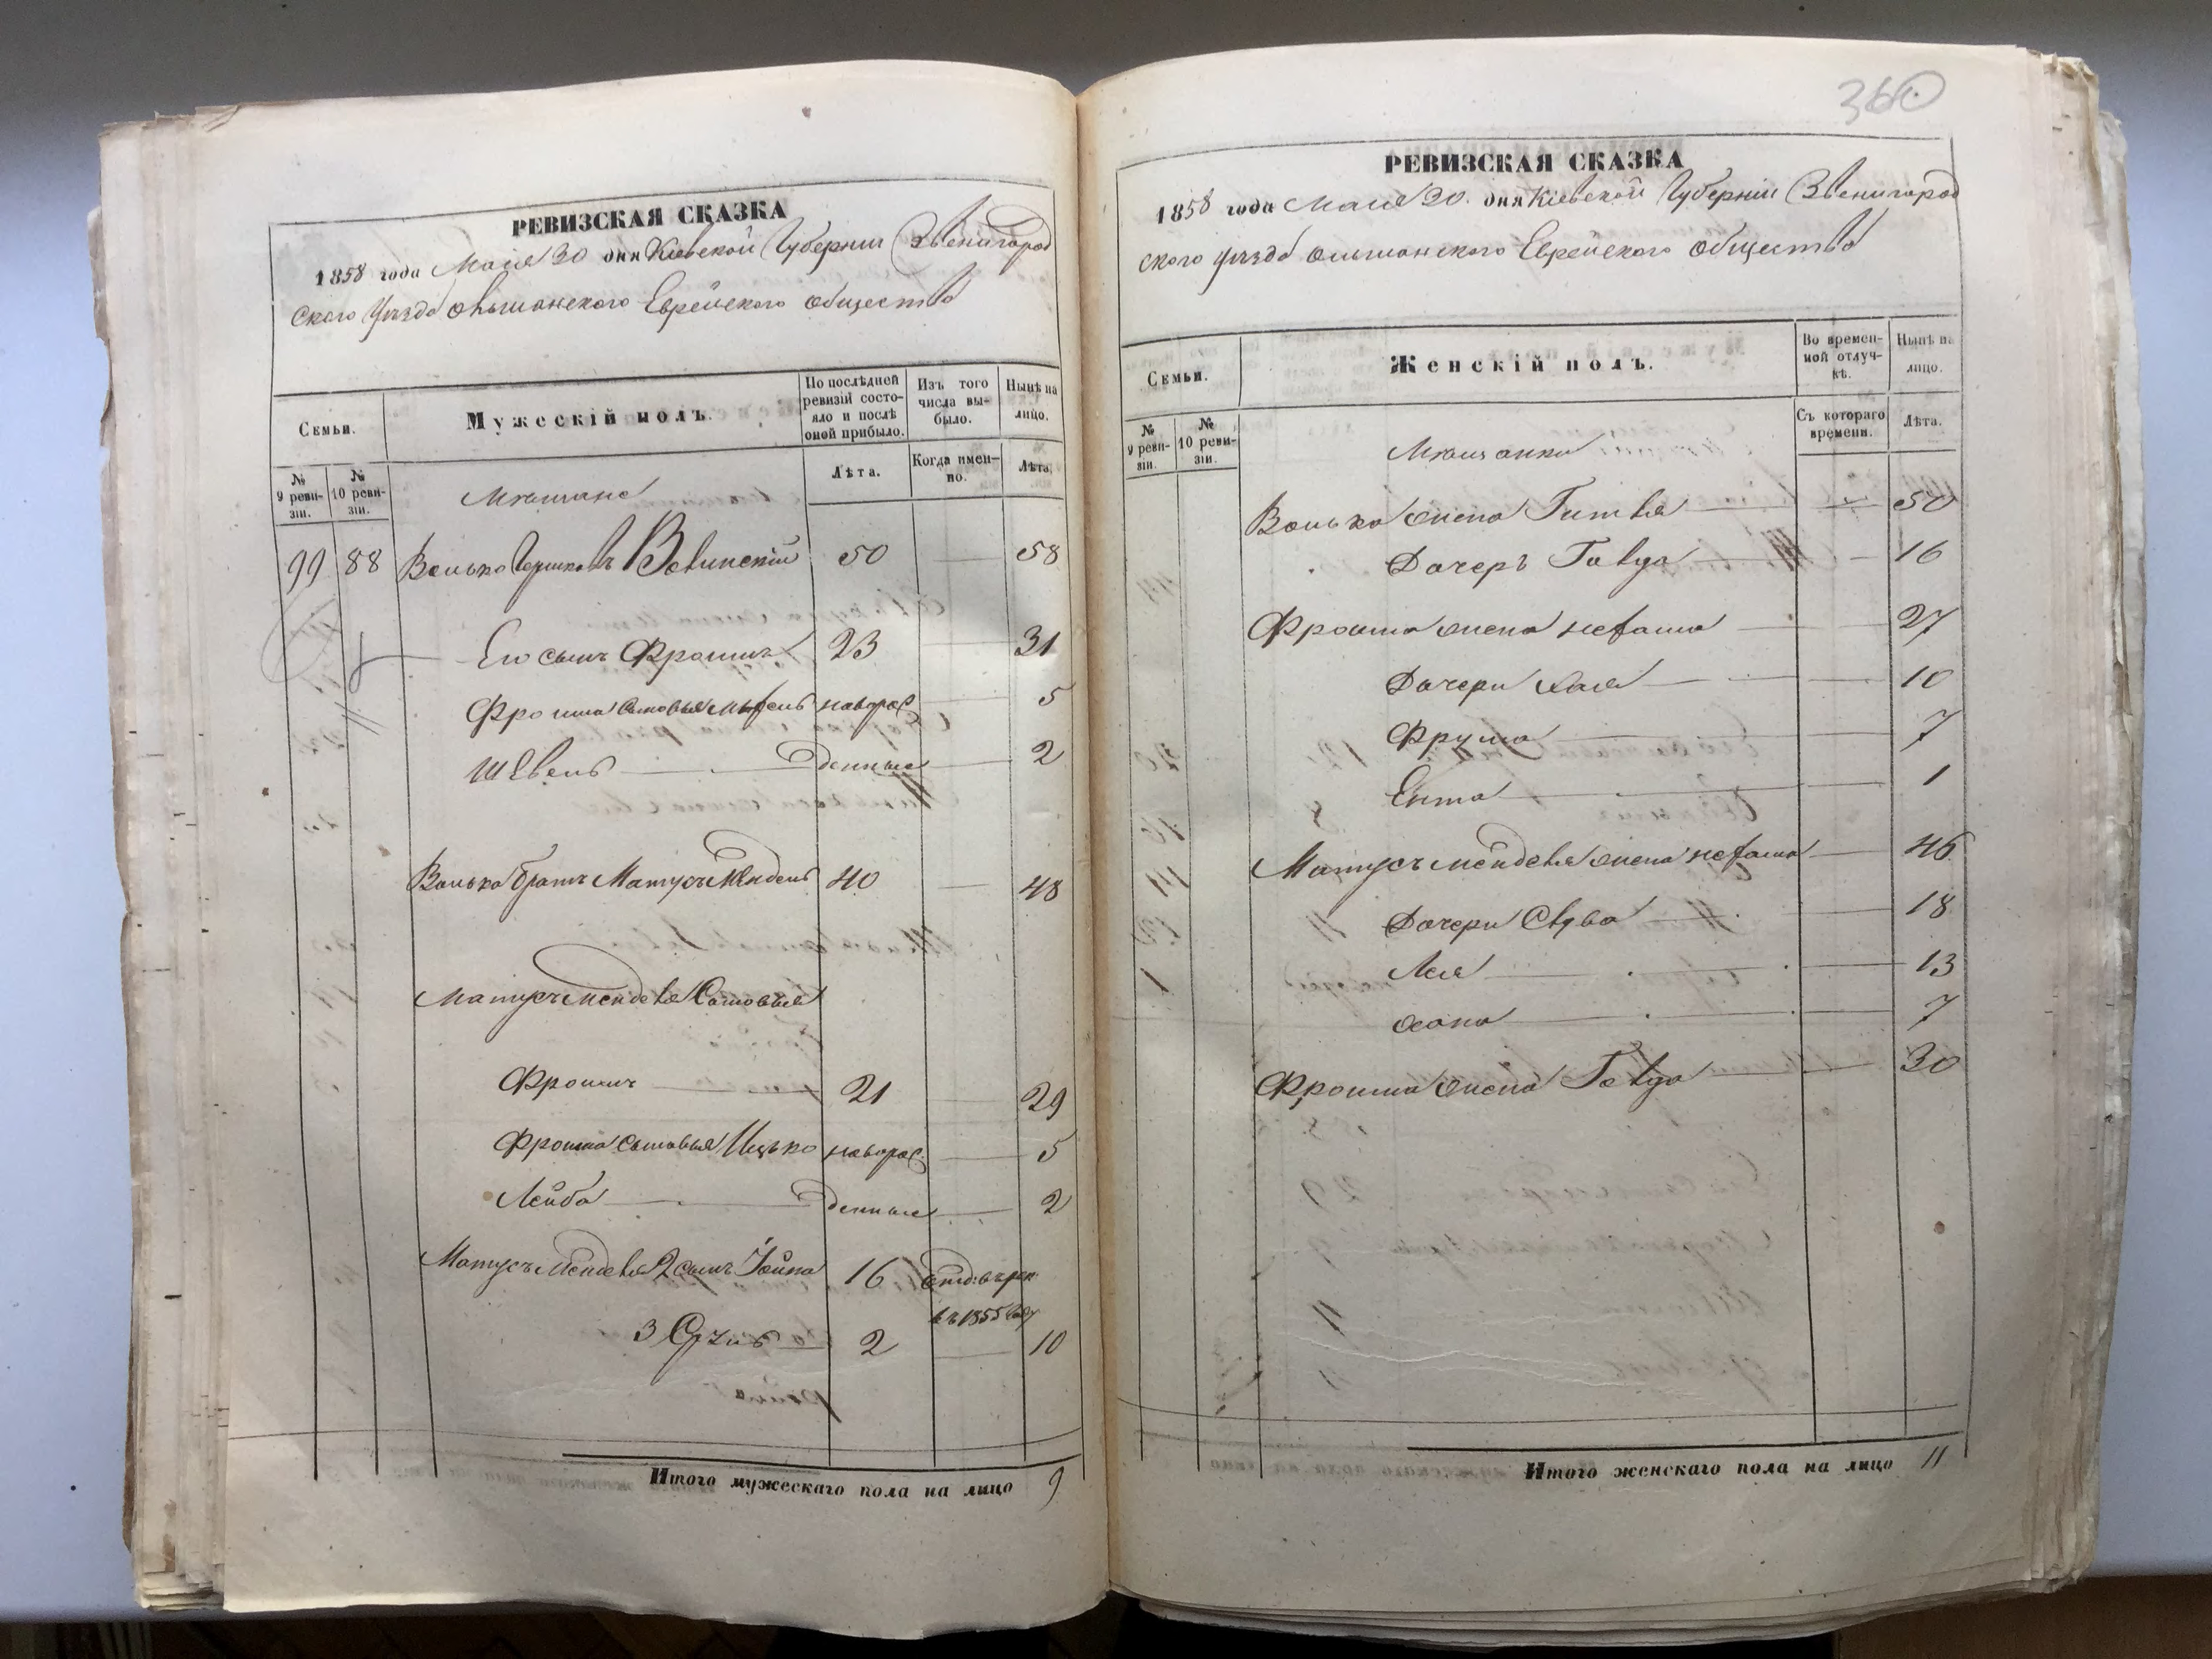 РЕВИЗСКАЯ СКАЗКА
1858 года Мая 30 дня Кіевской Губерніи Звенигород
ского уезда Ольшанского Еврейского общества
Семьи.
Мужескій полъ.
По послѣдней ревизіи состояло и послѣ оной прибыло.
Изъ того числа выбыло.
Нынѣ на лицо.
№ 9 ревизіи.
№ 10 ревизіи.
Лѣта.
Когда именно.
Лѣта.
Мещане
99 88 Волько Гершковъ 50 — 58
Его сынъ Фроимъ 23 — 31
Фроима сыновья новорож 5
денные 2
Волько братъ Матусъ Мендель 40 — 48
Матусъ Менделя Сыновья
Фроимъ — 21 — 29
Фроима сыновья Ицько новорож. — 5
Лейба — денные — 2
Матусъ Менделя 2 сынъ 16
въ 1855 году
3 2 — 10
Итого мужескаго пола на лицо 9
360
РЕВИЗСКАЯ СКАЗКА
1858 года Мая 30. дня Кіевской Губерніи Звенигород
ского уезда Ольшанского Еврейского общества
Семьи.
Женскій полъ.
Во временной отлучкѣ.
Нынѣ на лицо.
№ 9 ревизіи.
№ 10 ревизіи.
Съ котораго времени.
Лѣта.
Мещанки
Волька жена Гитля — 50
Дочерь — 16
Фроима жена Нехама — 27
Дочери Хая — 10
Фрума — 7
Ента — 1
Матусъ Менделя жена Нехама — 46
Дочери — 18
Лея — 13
Хана — 7
Фроима жена — 30
Итого женскаго пола на лицо 11